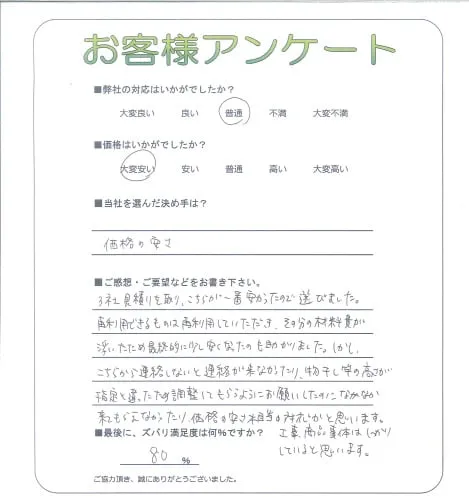 お客様アンケート
■弊社の対応はいかがでしたか?
大変良い 良い 普通 不満 大変不満
■価格はいかがでしたか?
大変安い 安い 普通 高い 大変高い
■当社を選んだ決め手は?
価格の安さ
■ご感想・ご要望などをお書き下さい。
3社見積りを取り、こちらが一番安かったので選びました。
再利用できるものは再利用していただき、その分の材料費が
浮いたため最終的に少し安くなったのも助かりました。しかし、
こちらから連絡しないと連絡が来なかったり、物干し竿の高さが
指定と違ったため調整してもらうようにお願いしたのになかなか
来てもらえなかったり、価格の安さ相当の対応かと思います。
工事、商品自体はしっかり
していると思います。
■最後に、ズバリ満足度は何%ですか?
80 %
ご協力頂き、誠にありがとうございました。